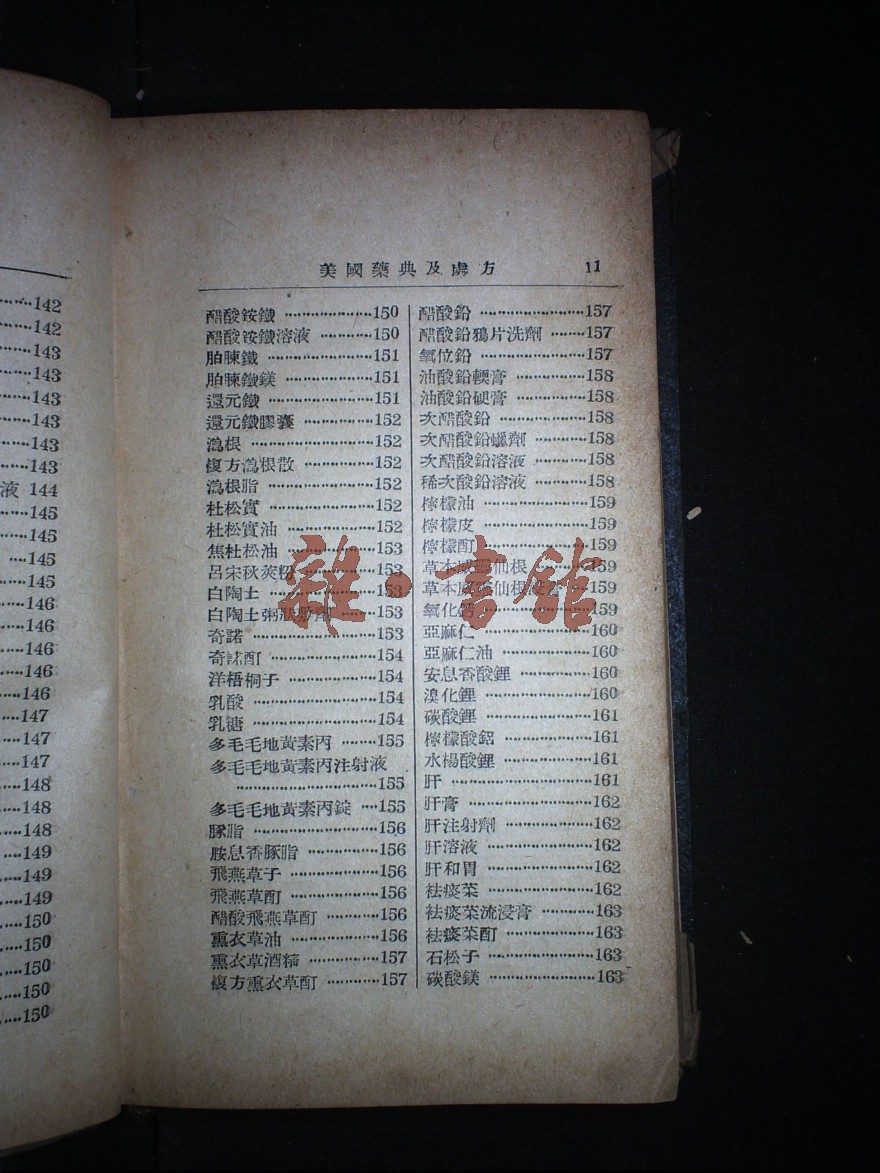 142
142
143
143
143
143
143
143
液 144
145
145
145
145
146
146
146
146
146
147
147
147
148
148
148
149
149
149
150
150
150
150
美國藥典及處方 11
醋酸銨鐵 150
醋酸銨鐵溶液 150
胎腖鐵 151
胎腖鐵鎂 151
還元鐵 151
還元鐵膠囊 152
瀉根 152
複方瀉根散 152
瀉根脂 152
杜松實 152
杜松實油 152
焦杜松油 153
呂宋秋莢粉 153
白陶土 153
白陶土粥狀 153
奇諾 153
奇諾酊 154
洋梧桐子 154
乳酸 154
乳糖 154
多毛毛地黃素丙 155
多毛毛地黃素丙注射液
155
多毛毛地黃素丙錠 155
豚脂 156
胺息香豚脂 156
飛燕草子 156
飛燕草酊 156
醋酸飛燕草酊 156
熏衣草油 156
熏衣草酒精 157
複方熏衣草酊 157
醋酸鉛 157
醋酸鉛鴉片洗劑 157
氧化鉛 157
油酸鉛輭膏 158
油酸鉛硬膏 158
次醋酸鉛 158
次醋酸鉛蠟劑 158
次醋酸鉛溶液 158
稀次酸鉛溶液 158
檸檬油 159
檸檬皮 159
檸檬酊 159
草本威靈仙根 159
草本威靈仙根浸膏 159
氧化鈣 159
亞麻仁 160
亞麻仁油 160
安息香酸鋰 160
溴化鋰 160
碳酸鋰 161
檸檬酸鋁 161
水楊酸鋰 161
肝 161
肝膏 162
肝注射劑 162
肝溶液 162
肝和胃 162
袪痰菜 162
袪痰菜流浸膏 163
袪痰菜酊 163
石松子 163
碳酸鎂 163
雜·書館